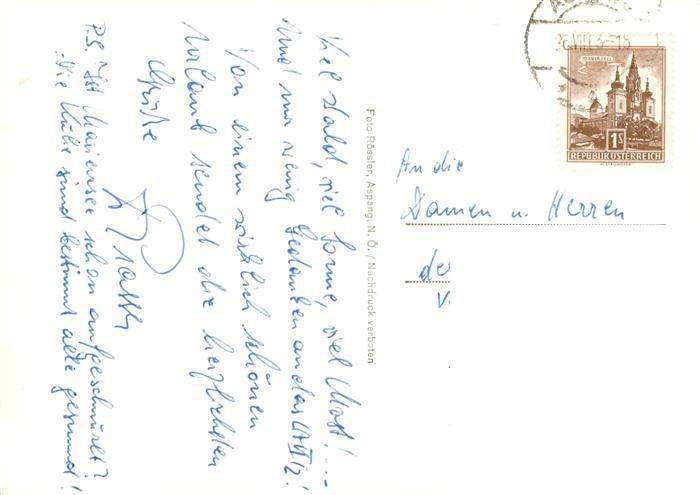 Viel Wald, viel Sonne, viel Most! ...
Und nur wenig Gedanken an das
Von einem wirklich schönen
Urlaub sendet die herzlichsten
Grüße
P.S. Ist Mariensee schon aufgeschnürlt?
Die Kühe sind bestimmt alle gesund!
Foto Rössler, Aspang, N. Ö. / Nachdruck verboten
MARIAZELL
1S
REPUBLIK ÖSTERREICH
An die
Damen u. Herren
de
V.